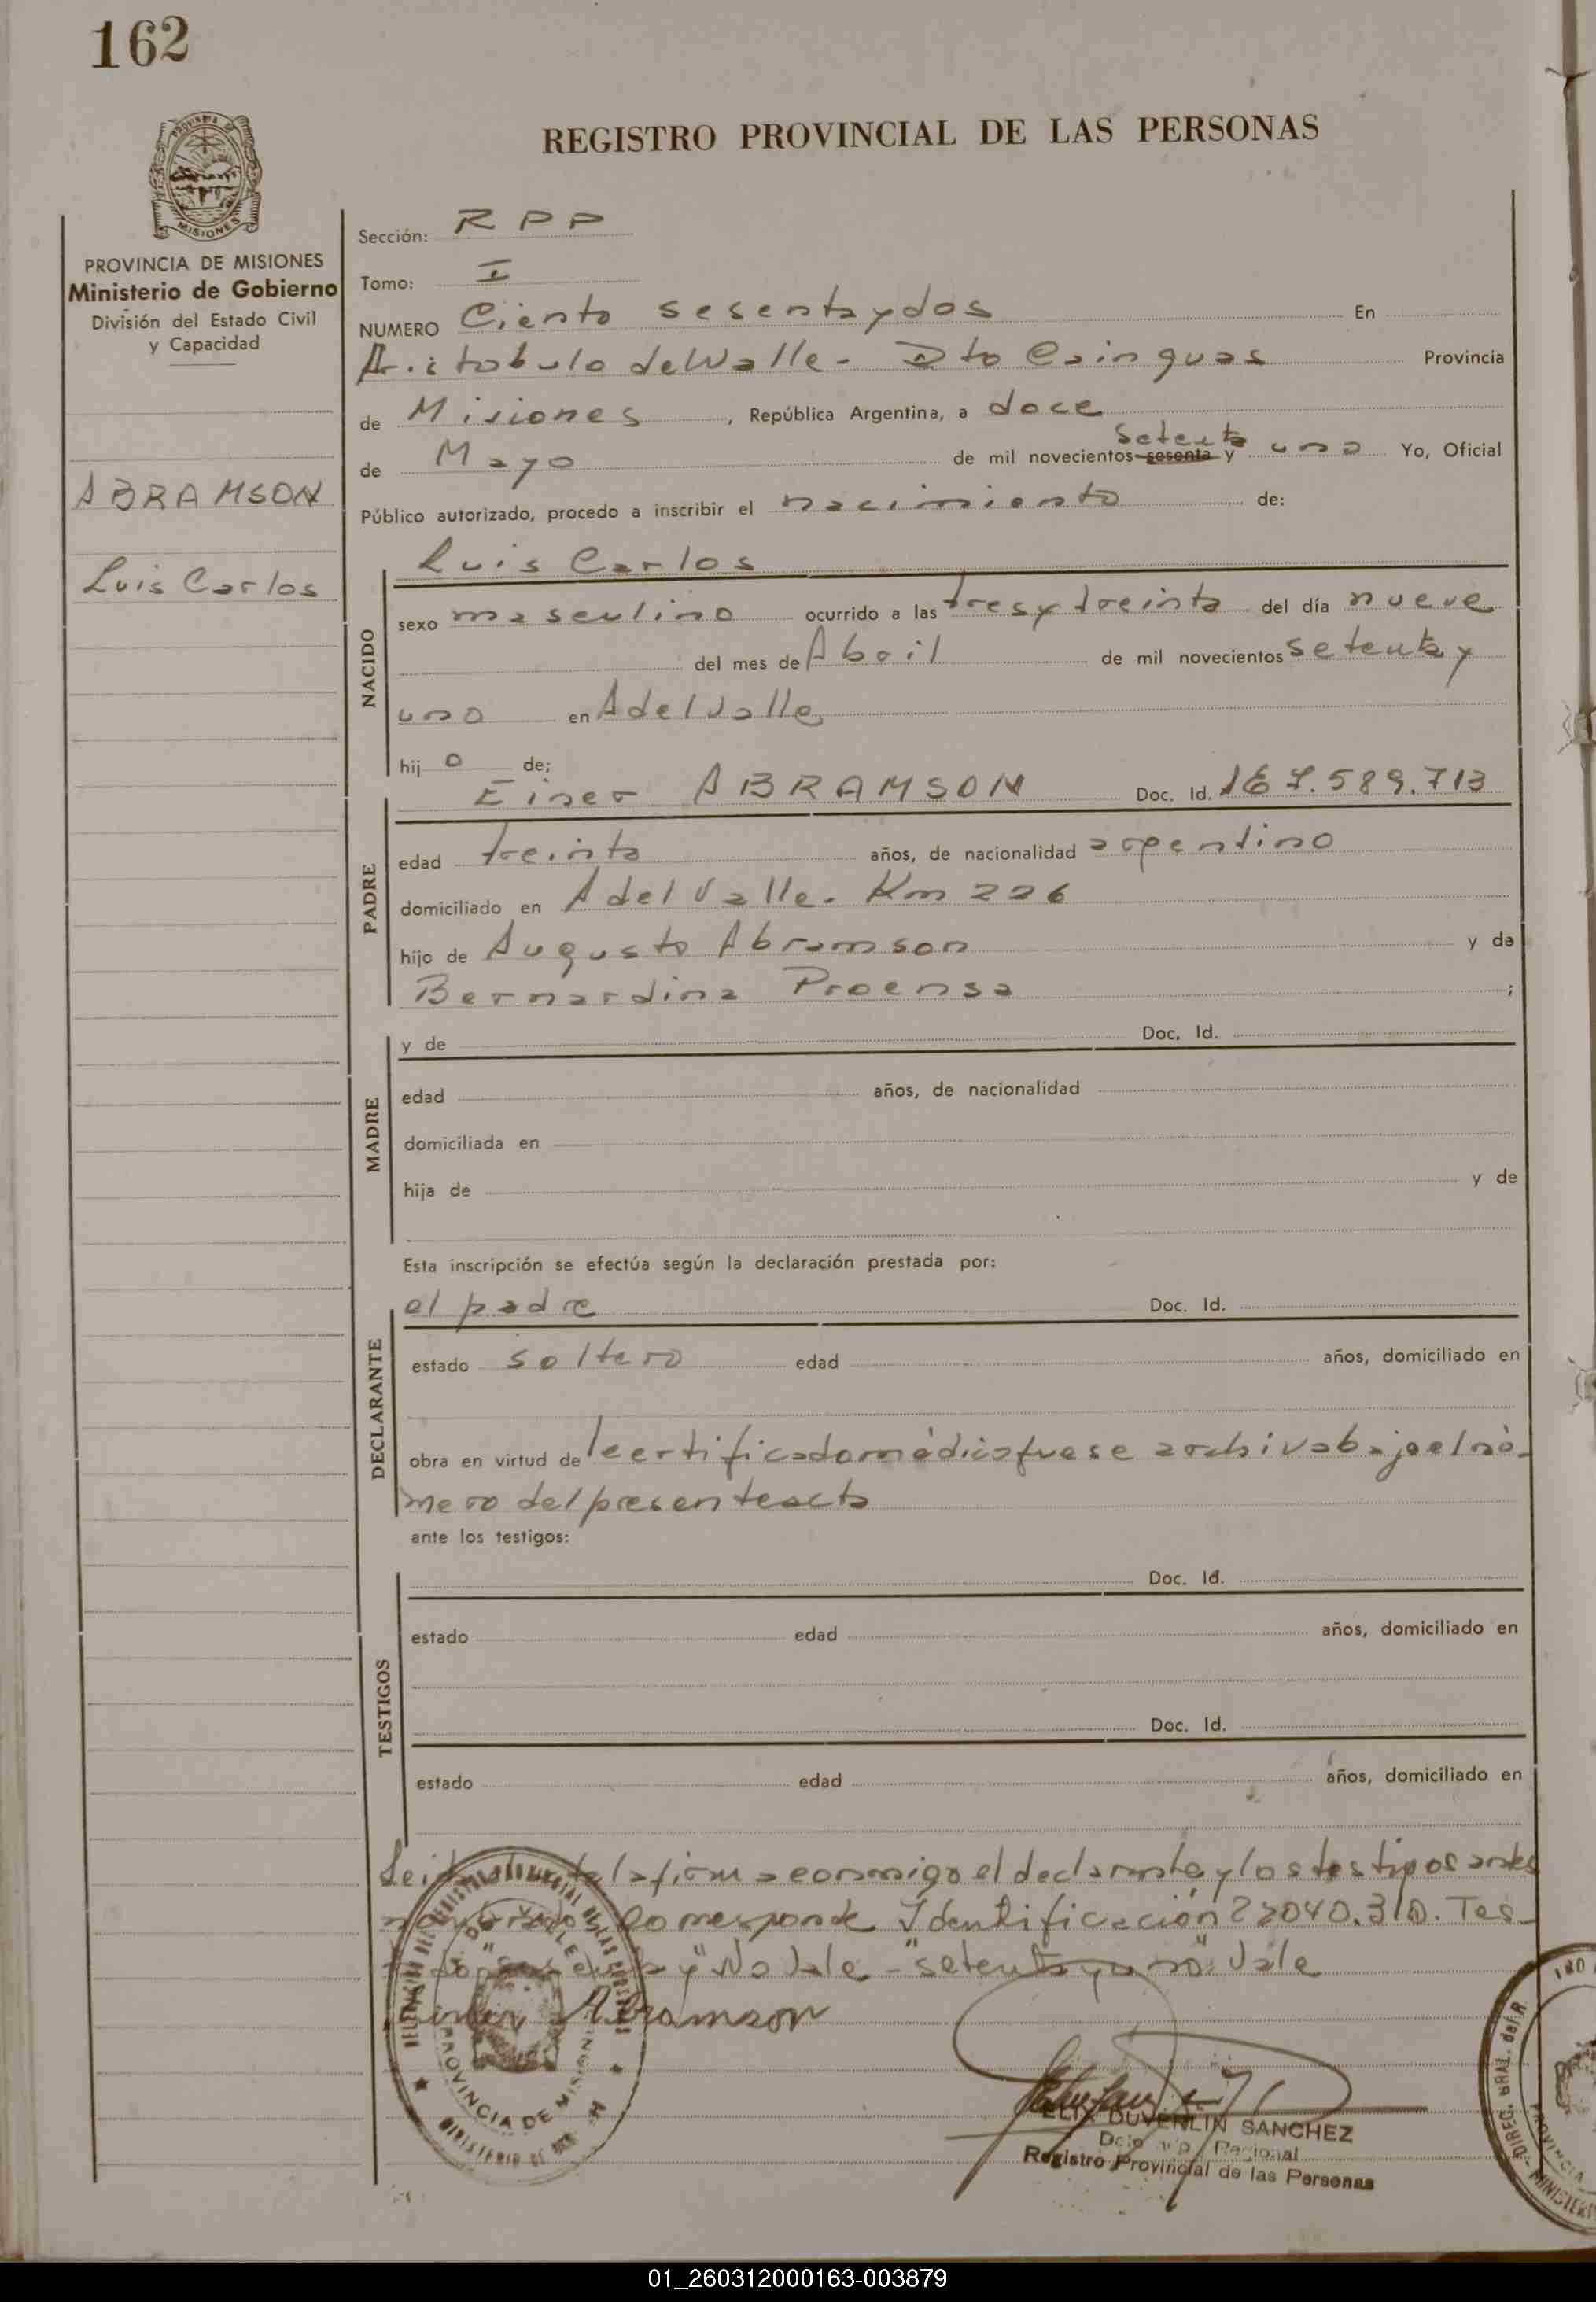 162
REGISTRO PROVINCIAL DE LAS PERSONAS
PROVINCIA DE MISIONES
Ministerio de Gobierno
División del Estado Civil
y Capacidad
ABRAMSON
Luis Carlos
Sección: RPP
Tomo: I
NUMERO Ciento sesentaydos En
Aristobulo delValle - Dto Cainguas Provincia
de Misiones, República Argentina, a doce
de Mayo de mil novecientos sesenta y setenta uno Yo, Oficial
Público autorizado, procedo a inscribir el nacimiento de:
NACIDO
Luis Carlos
sexo masculino ocurrido a las tres y treinta del día nueve
del mes de Abril de mil novecientos setenta y
uno en A del Valle
hij o de;
PADRE
Einer ABRAMSON Doc. Id. 167.589.713
edad treinta años, de nacionalidad argentino
domiciliado en A del Valle. Km 226
hijo de Augusto Abramson y de
Bernardina Proensa ;
MADRE
y de Doc. Id.
edad años, de nacionalidad
domiciliada en
hija de y de
Esta inscripción se efectúa según la declaración prestada por:
DECLARANTE
el padre Doc. Id.
estado soltero edad años, domiciliado en
obra en virtud de lcertificadomédico que se archiva bajo el nú-
mero del presente acta
ante los testigos:
TESTIGOS
Doc. Id.
estado edad años, domiciliado en
Doc. Id.
estado edad años, domiciliado en
la firma conmigo el declarante y los testigos antes
Corresponde Identificación Tes-
y" No Vale - "setenta y uno" Vale
Einer Abramson
PROVINCIA DE MISIONES
DUVENLIN SANCHEZ
Regional
Registro Provincial de las Personas
DIREC. GRAL. del R.
01_260312000163-003879